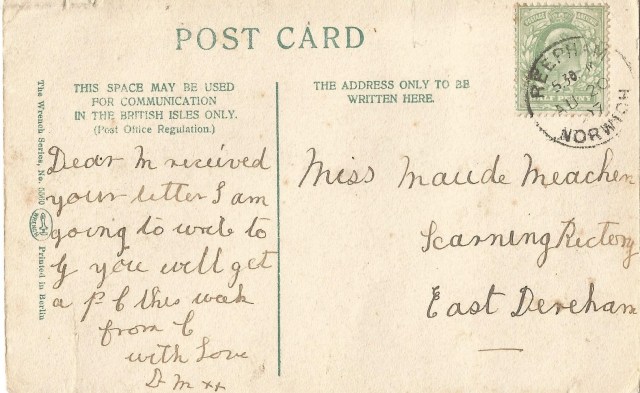 POST CARD
THIS SPACE MAY BE USED
FOR COMMUNICATION
IN THE BRITISH ISLES ONLY.
(Post Office Regulation.)
THE ADDRESS ONLY TO BE
WRITTEN HERE.
REEPHAM
5.30
AU 20
07
NORWICH
The Wrench Series, No.
Printed in Berlin
Dear M received
your letter I am
going to write to
G you will get
a P C this week
from C
with Love
D M xx
Miss Maude Meachen
Scarning Rectory
East Dereham